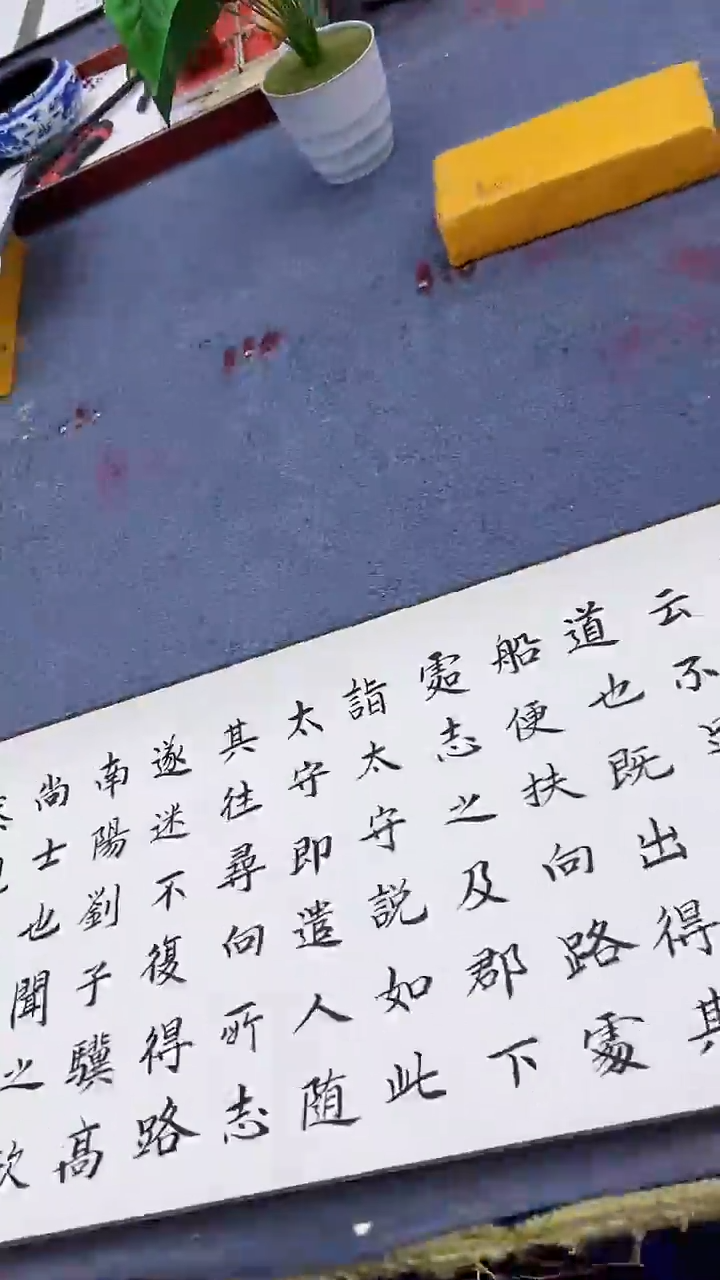 云不
道也既出得其
船便扶向路處
處志之及郡下
詣太守説如此
太守即遣人随
其往尋向所志
遂迷不復得路
南陽劉子驥高
尚士也聞之